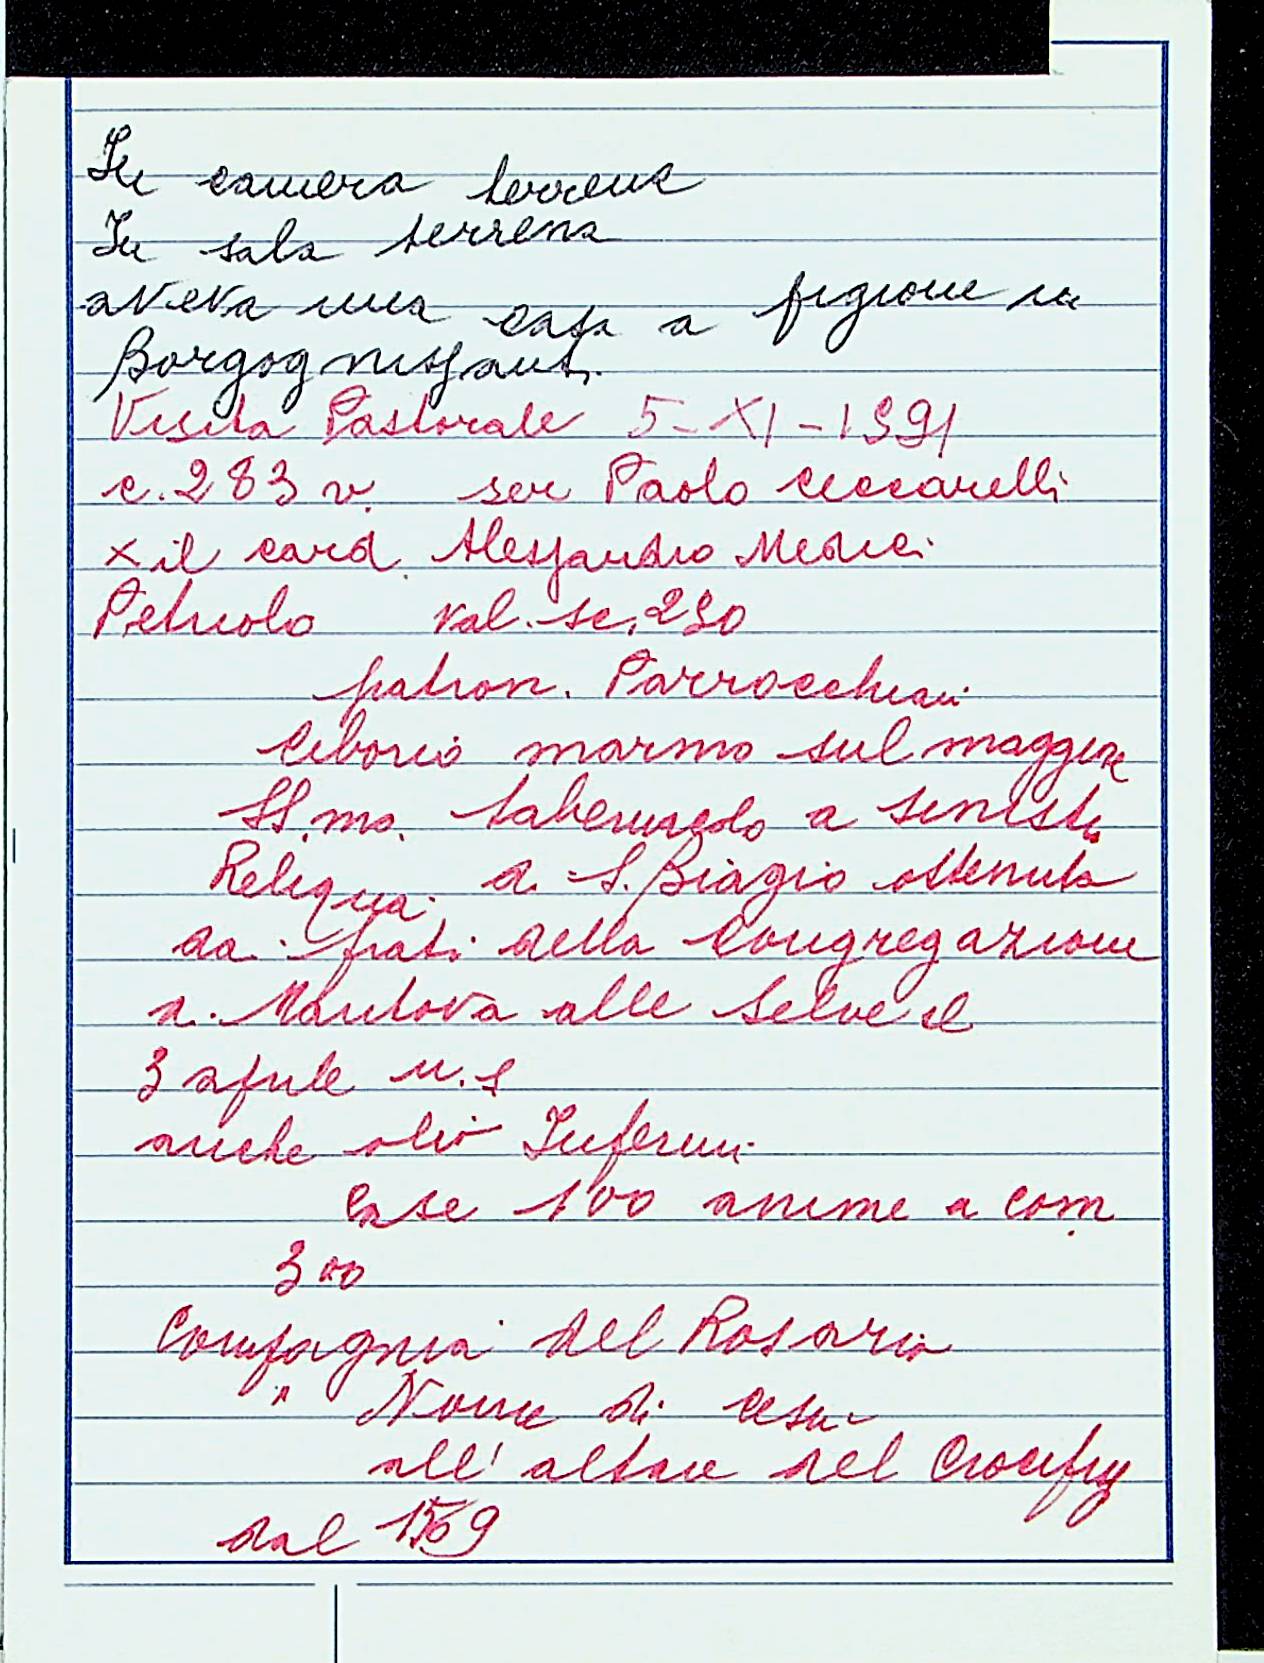 In camera terrena
In sala terrena
aveva una casa a pigione in
Borgognissanti.
Visita Pastorale 5-XI-1591
c. 283 v. ser Paolo Ceccarelli
x il card. Alessandro Medici
Petriolo val. sc. 230
patron. Parrocchiani
Ciborio marmo sul maggiore
SS.mo. tabernacolo a sinistra
Reliquia di S. Biagio ottenuta
dai frati della Congregazione
di Mantova alle Selve il
3 aprile u.s
anche olio Infermi
Case 100 anime a com
300
Compagnia del Rosario
" Nome di Gesu
all'altare del Crocifisso
dal 1569